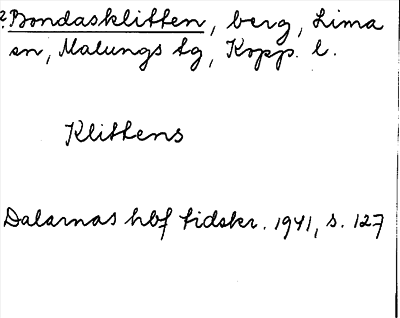 ? Bondasklitten, berg, Lima
sn, Malungs tg, Kopp. l.
Klittens
Dalarnas hbf tidskr. 1941, s. 127